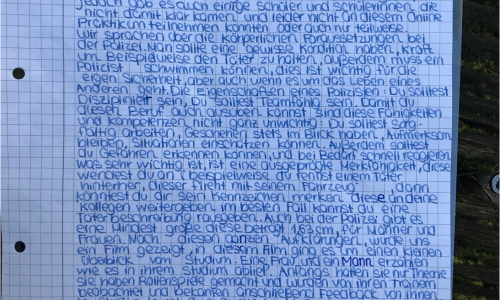 jedoch gab es auch einige Schüler und Schülerinnen, die
nicht damit klar kamen und leider nicht an diesem Online
Praktikum teilnehmen konnten oder auch nur teilweise.
Wir sprachen über die körperlichen Voraussetzungen bei
der Polizei. Man sollte eine gewisse Kondition haben, Kraft
um Beispielweise den Täter zu halten, außerdem muss ein
Polizist schwimmen können, dies ist wichtig für die
eigen Sicherheit, aber auch wenn es um das Leben eines
Anderen geht. Die Eigenschaften eines Polizisten: Du solltest
Diszipliniert sein, Du solltest Teamfähig sein. Damit du
diesen Beruf auch ausüben kannst sind diese Fähigkeiten
und Kompetenzen nicht ganz unwichtig: Du solltest sorg-
fältig arbeiten, Geschehen stets im Blick haben, Aufmerksam
bleiben, Situationen einschätzen können. Außerdem solltest
du Gefahren erkennen können, und bei Bedarf schnell reagieren.
Was sehr wichtig ist, ist eine ausgeprägte Merkfähigkeit, diese
wendest du an, beispielweise du rennst einem Täter
hinterher, dieser flieht mit seinem Fahrzeug, dann
könntest du dir sein Kennzeichen merken, diese an deine
Kollegen weitergeben. Im besten Fall kannst du eine
Täterbeschreibung rausgeben. Auch bei der Polizei gibt es
eine Mindest größe diese beträgt 1,63 cm, für Männer und
Frauen. Nach diesen ganzen Aufklärungen, wurde uns
ein Film gezeigt, in diesem Film ging es um einen kleinen
Überblick vom Studium: Eine Frau und ein Mann erzählen
wie es in ihrem Studium ablief. Anfangs hatten sie nur Theorie
sie haben Rollenspiele gemacht und wurden von ihren Trainern
beobachtet und bekamen Anschließend Feedback von ihnen